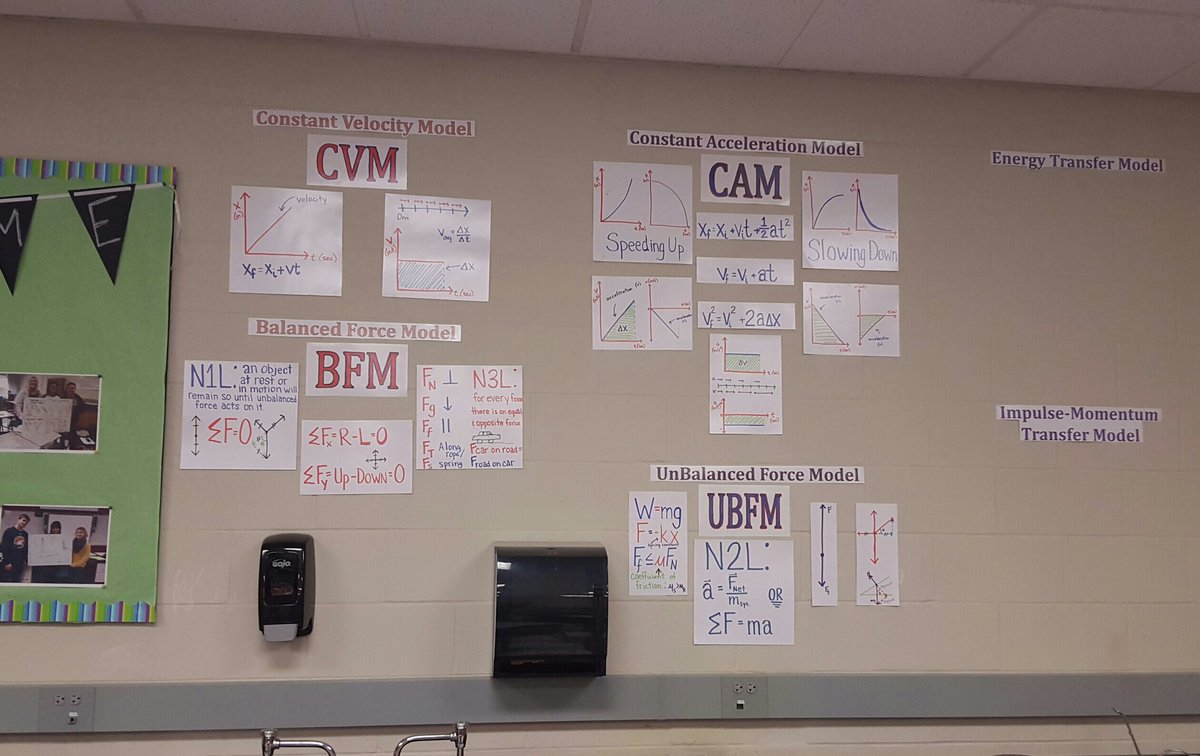 M E
Constant Velocity Model
CVM
Velocity
t (sec)
Xf = Xi + vt
0m
Vavg = ΔX/Δt
X
ΔX
t (sec)
Balanced Force Model
BFM
N1L: an object
at rest or
in motion will
remain so until unbalanced
force acts on it
ΣF=0
ΣFx = R-L=0
ΣFy = Up-Down=0
FN ⊥
Fg ↓
Ff ||
FT Along
rope/
Fs spring
N3L:
for every force
there is an equal
& opposite force
Fcar on road =
Froad on car
GOJO
Constant Acceleration Model
CAM
Speeding Up
Xf = Xi + Vit + 1/2 at²
Vf = Vi + at
Vf² = Vi² + 2aΔX
Slowing Down
acceleration
ΔX
acceleration
acceleration
ΔV
UnBalanced Force Model
UBFM
W=mg
F=-kx
spring
Ff ≤ μFN
coefficient of
friction
N2L:
a = FNet/msys OR
ΣF=ma
Energy Transfer Model
Impulse-Momentum
Transfer Model